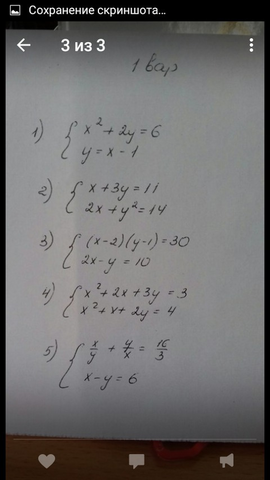 Сохранение скриншота...
3 из 3
1 вар
1) { x² + 2y = 6
y = x - 1
2) { x + 3y = 11
2x + y² = 14
3) { (x-2)(y-1) = 30
2x - y = 10
4) { x² + 2x + 3y = 3
x² + x + 2y = 4
5) { x/y + y/x = 16/3
x - y = 6